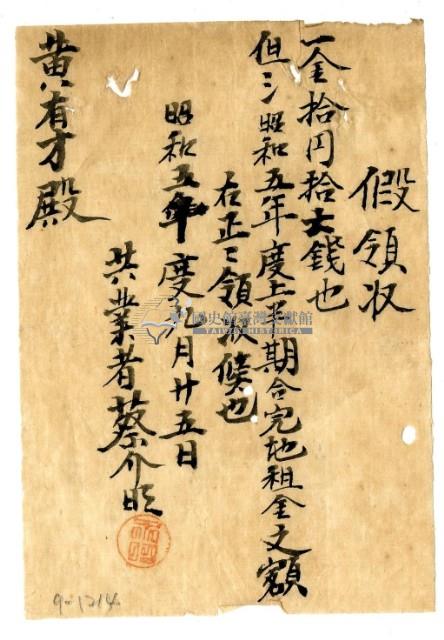 假領収
一金拾円拾六錢也
但シ昭和五年度上半期合完地租金之額
右正ニ領收候也
昭和五年度九月廿五日
共業者蔡介旺
黄有才殿
國史館臺灣文獻館
TAIWAN HISTORICA